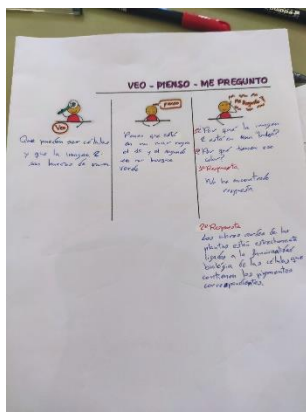 VEO - PIENSO - ME PREGUNTO
Veo
Pienso
Me Pregunto
Que pueden ser células
y que la imagen
Pienso que está
en
el
en un bosque
verde
1º Por qué la imagen
está en
2º Por qué tienen ese
color?
1º Respuesta
No he encontrado
respuesta
2º Respuesta
Los colores verdes de las
plantas están estrechamente
ligados a la funcionalidad
biológica de las células que
contienen los pigmentos
correspondientes.